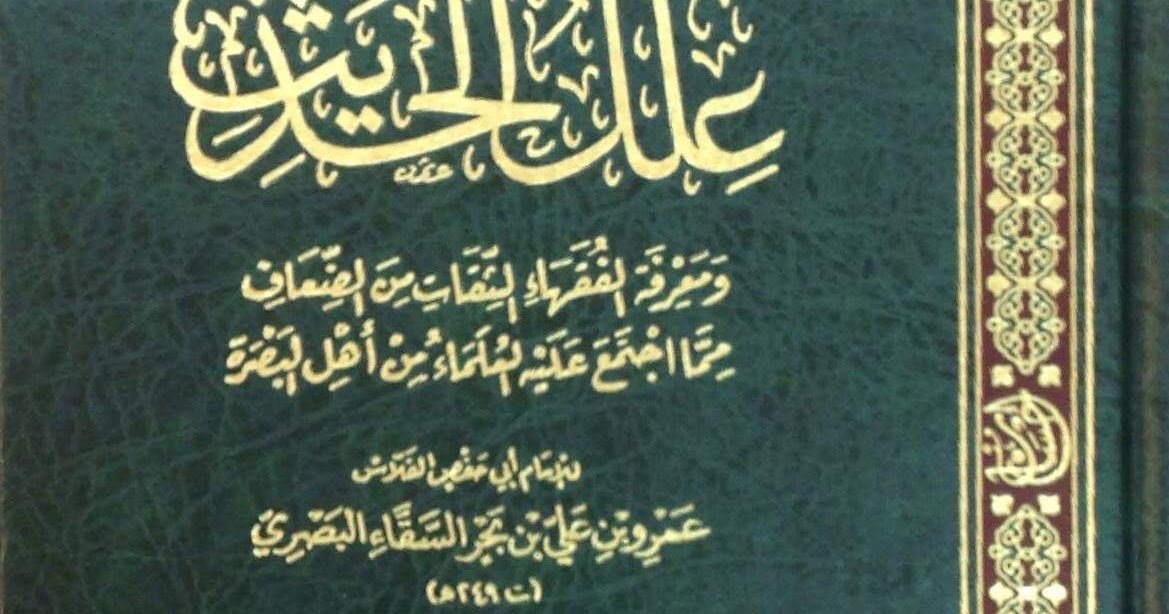 عِلَلُ الحَدِيْثِ
وَمَعْرِفَةِ الفُقَهَاءِ الثِّقَاتِ مِنَ الضِّعَافِ
مِمَّا اجْتَمَعَ عَلَيْهِ العُلَمَاءُ مِنْ أَهْلِ البَصْرَةِ
للإمام أبي حفص الفلاس
عَمْرِو بْنِ عَلِيِّ بْنِ بَحْرِ السَّقَّاءِ البَصْرِيِّ
(ت ٢٤٩هـ)